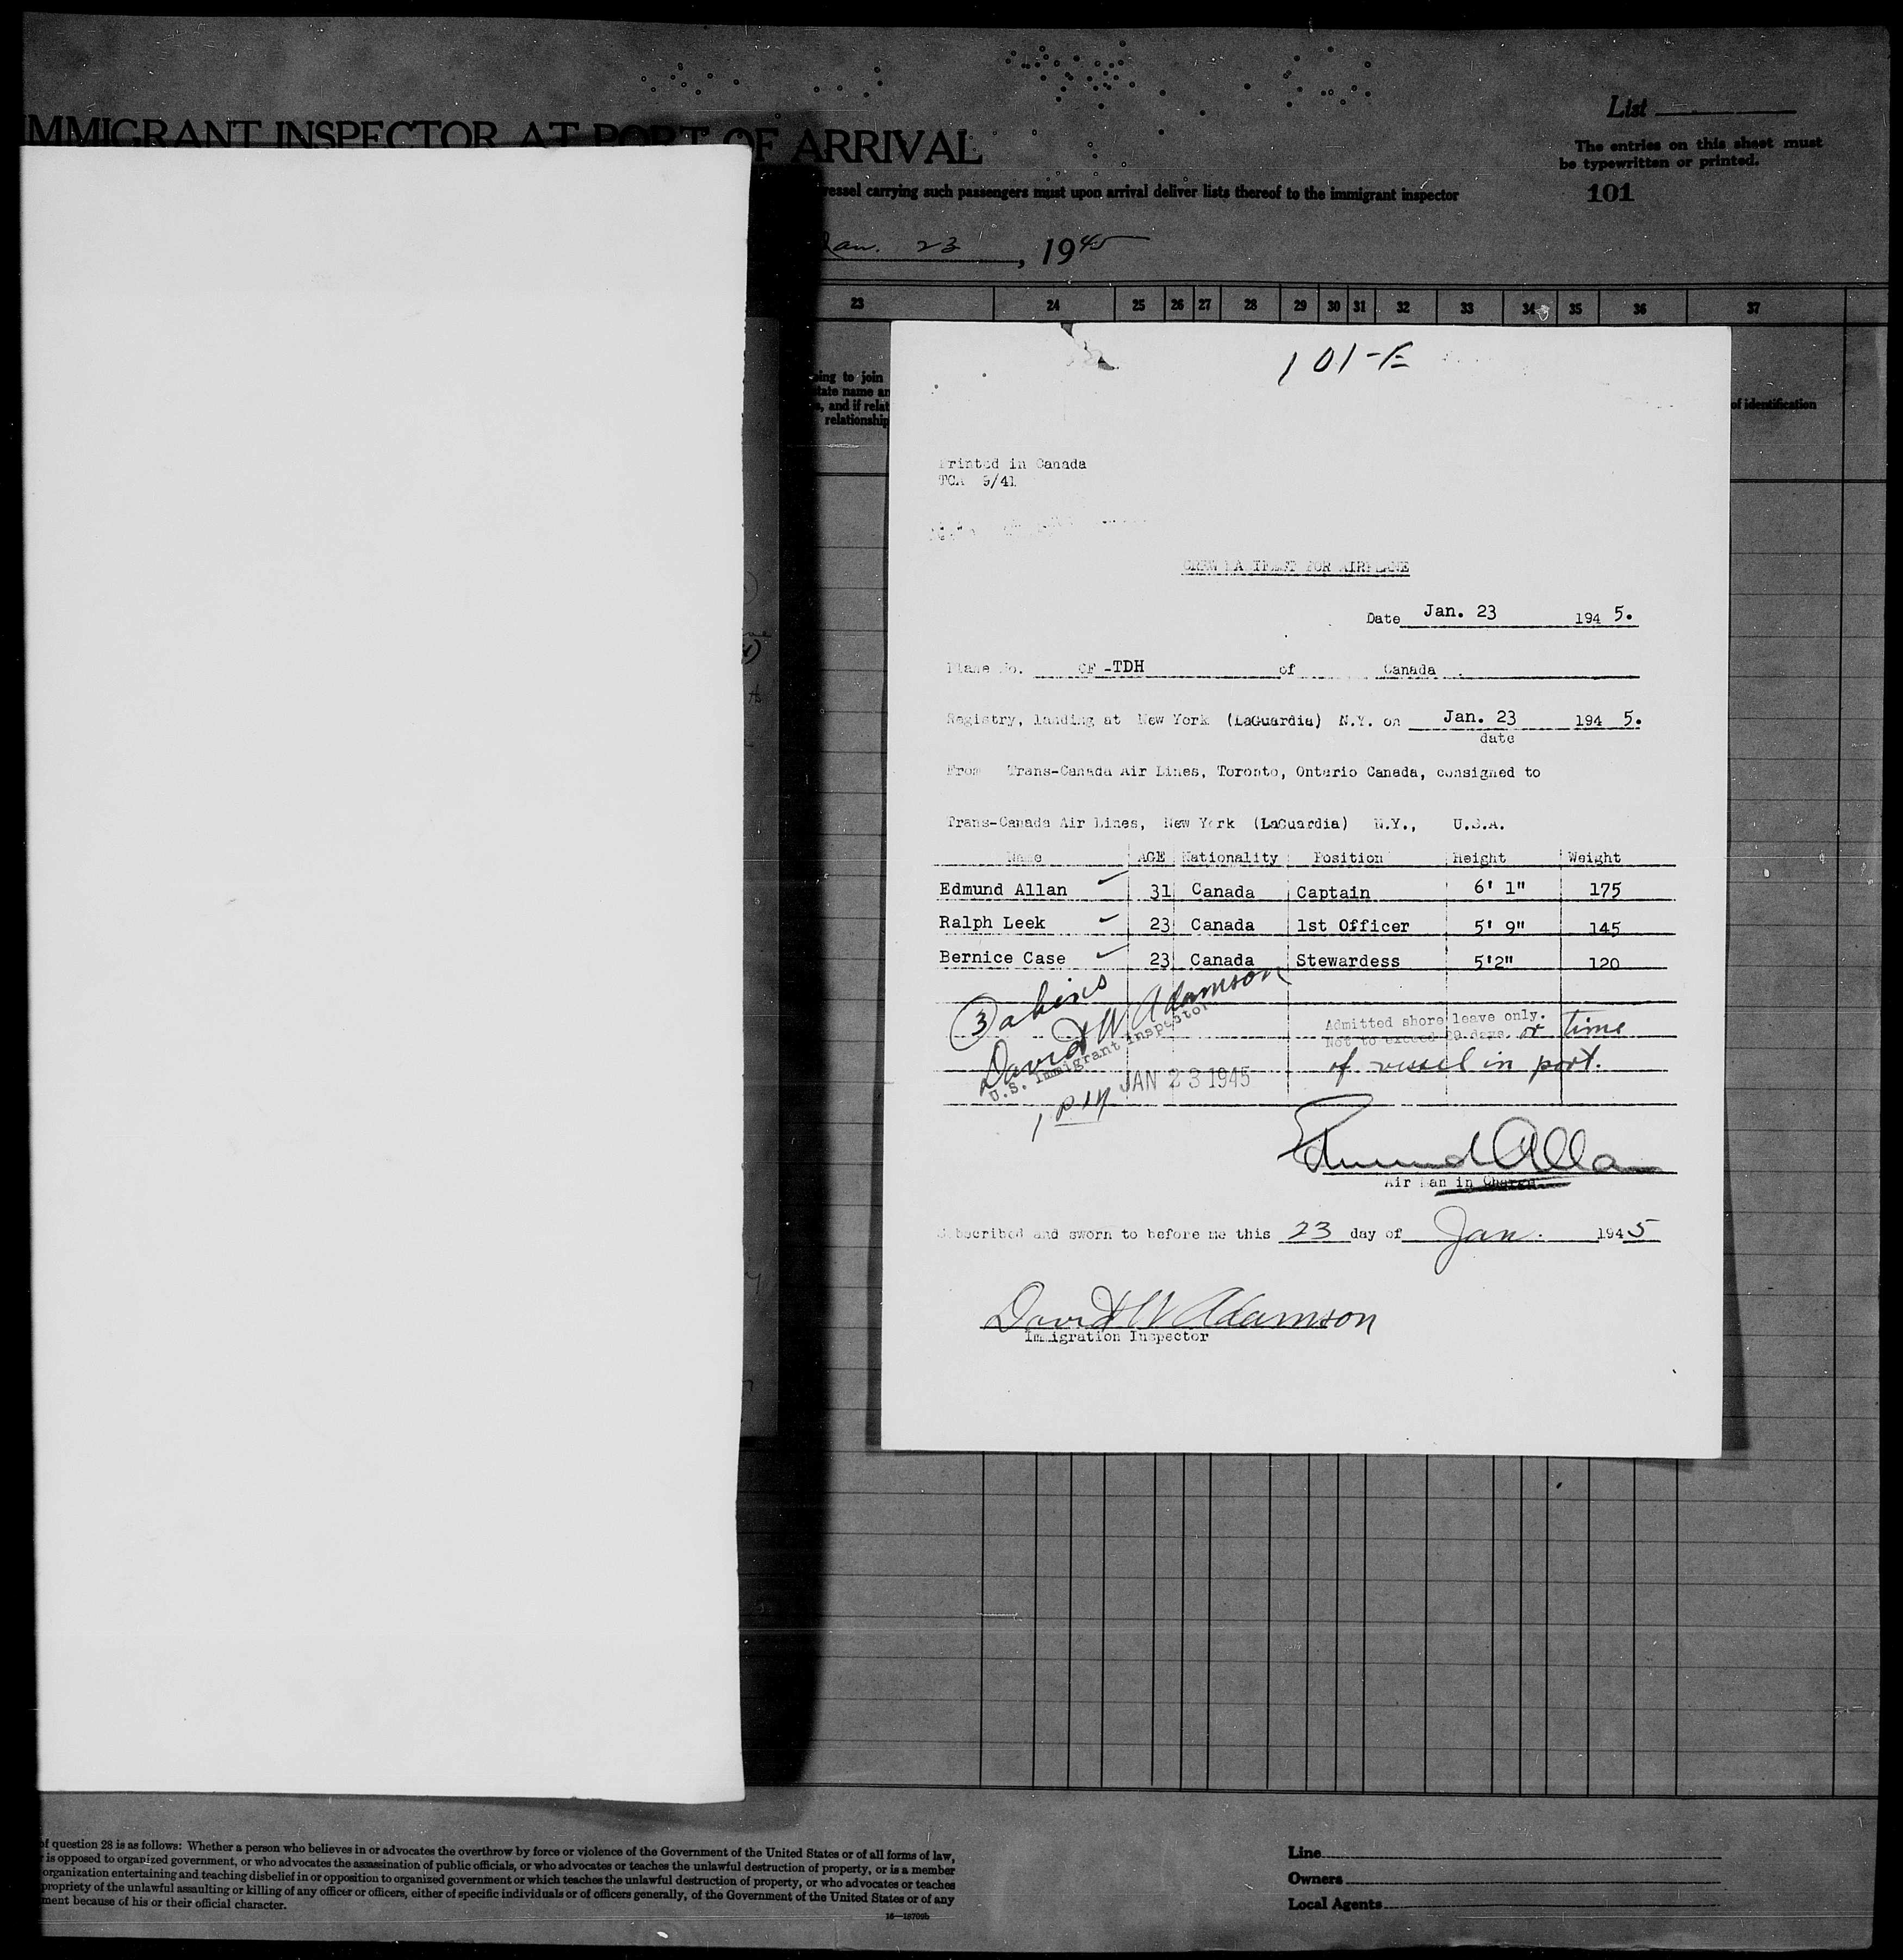 IMMIGRANT INSPECTOR AT PORT OF ARRIVAL
List
The entries on this sheet must
be typewritten or printed.
101
vessel carrying such passengers must upon arrival deliver lists thereof to the immigrant inspector
Jan. 23, 1945
23 24 25 26 27 28 29 30 31 32 33 34 35 36 37
going to join
state name an
, and if relat
relationship
of identification
101-E
Printed in Canada
TCA 9/41
CREW MANIFEST FOR AIRPLANE
Date Jan. 23 194 5.
Plane No. CF-TDH of Canada
Registry, landing at New York (LaGuardia) N.Y. on Jan. 23 194 5.
date
From Trans-Canada Air Lines, Toronto, Ontario Canada, consigned to
Trans-Canada Air Lines, New York (LaGuardia) N.Y., U.S.A.
Name AGE Nationality Position Height Weight
Edmund Allan 31 Canada Captain 6' 1" 175
Ralph Leek 23 Canada 1st Officer 5' 9" 145
Bernice Case 23 Canada Stewardess 5'2" 120
3 aliens
David W Adamson
U.S. Immigrant Inspector
JAN 23 1945
Admitted shore leave only.
Not to exceed 29 days. or time
of vessel in port.
Edmund Allan
Air Man in Charge.
Subscribed and sworn to before me this 23 day of Jan. 1945
David W Adamson
Immigration Inspector
of question 28 is as follows: Whether a person who believes in or advocates the overthrow by force or violence of the Government of the United States or of all forms of law,
r is opposed to organized government, or who advocates the assassination of public officials, or who advocates or teaches the unlawful destruction of property, or is a member
organization entertaining and teaching disbelief in or opposition to organized government or which teaches the unlawful destruction of property, or who advocates or teaches
propriety of the unlawful assaulting or killing of any officer or officers, either of specific individuals or of officers generally, of the Government of the United States or of any
ment because of his or their official character.
16—18709b
Line
Owners
Local Agents